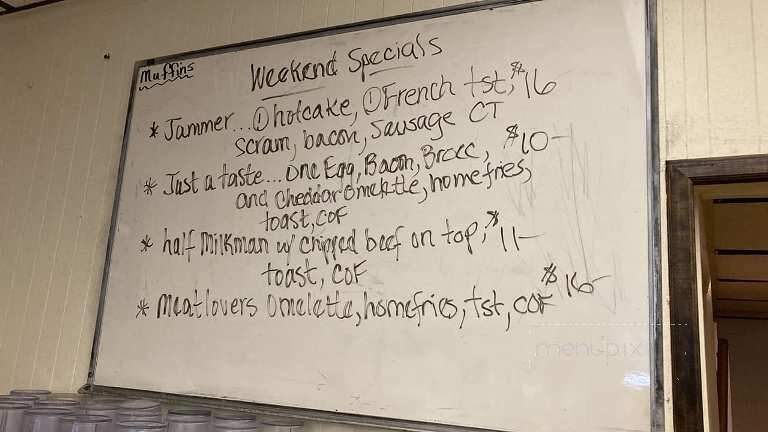 Muffins
Weekend Specials
* Jammer...① hotcake, ① French tst, $16
scram, bacon, Sausage CT
* Just a taste... One Egg, Bacon, Brocc, $10-
and Cheddar Omelette, homefries,
toast, COF
* half Milkman w/ chipped beef on top, $11-
toast, COF
* Meatlovers Omelette, homefries, tst, COF $16-
menupix